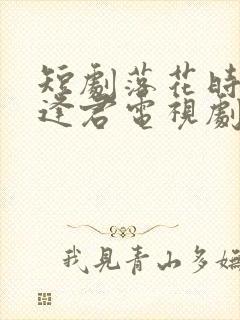 短劇落花時
逢君電視劇
我見青山多嫵